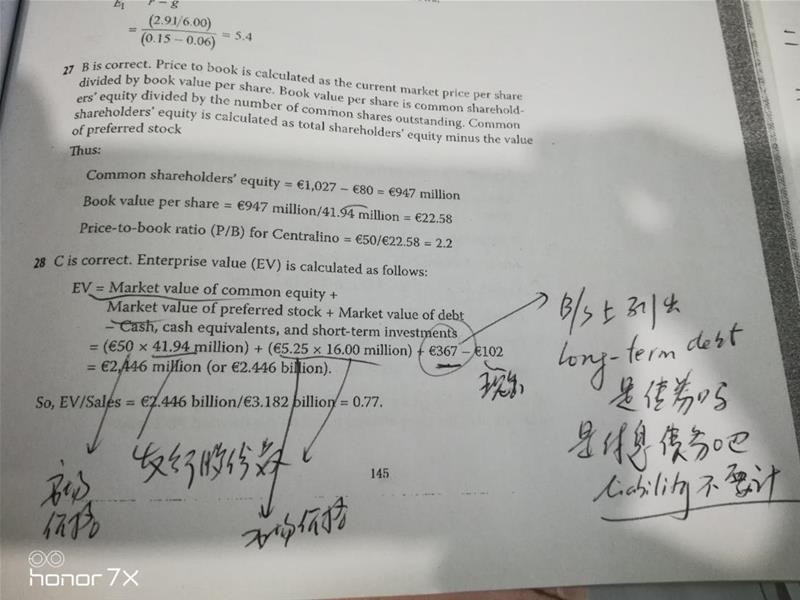 = (2.91/6.00)
(0.15 – 0.06) = 5.4
27 B is correct. Price to book is calculated as the current market price per share
divided by book value per share. Book value per share is common sharehold-
ers' equity divided by the number of common shares outstanding. Common
shareholders' equity is calculated as total shareholders' equity minus the value
of preferred stock
Thus:
Common shareholders' equity = €1,027 – €80 = €947 million
Book value per share = €947 million/41.94 million = €22.58
Price-to-book ratio (P/B) for Centralino = €50/€22.58 = 2.2
28 C is correct. Enterprise value (EV) is calculated as follows:
EV = Market value of common equity +
Market value of preferred stock + Market value of debt
– Cash, cash equivalents, and short-term investments
= (€50 × 41.94 million) + (€5.25 × 16.00 million) + €367 – €102
= €2,446 million (or €2.446 billion).
So, EV/Sales = €2.446 billion/€3.182 billion = 0.77.
B/S上列出
long-term debt
是债券吗
是付息债券吧
liability 不要计
现金
发行股份数
市场
价格
市场价格
145
honor 7X